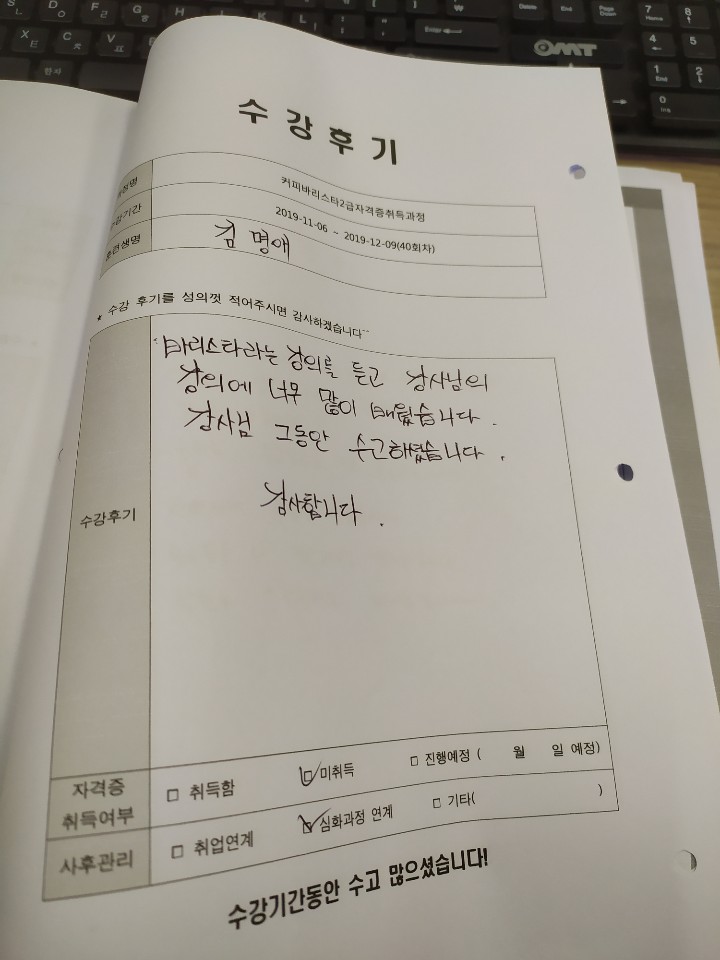 수 강 후 기
과정명 커피바리스타2급자격증취득과정
수강기간 2019-11-06 ~ 2019-12-09(40회차)
훈련생명 김 명애
* 수강 후기를 성의껏 적어주시면 감사하겠습니다^^
바리스타라는 강의를 듣고 강사님의
강의에 너무 많이 배웠습니다.
강사님 그동안 수고하셨습니다.
수강후기
감사합니다.
자격증
취득여부
□ 취득함 ☑ 미취득 □ 진행예정 ( 월 일 예정)
사후관리 □ 취업연계 ☑ 심화과정 연계 □ 기타( )
수강기간동안 수고 많으셨습니다!
OMT
Enter
한자
Delete
End
Page Down
7 Home
8
4
5
1 End
2
0 Ins